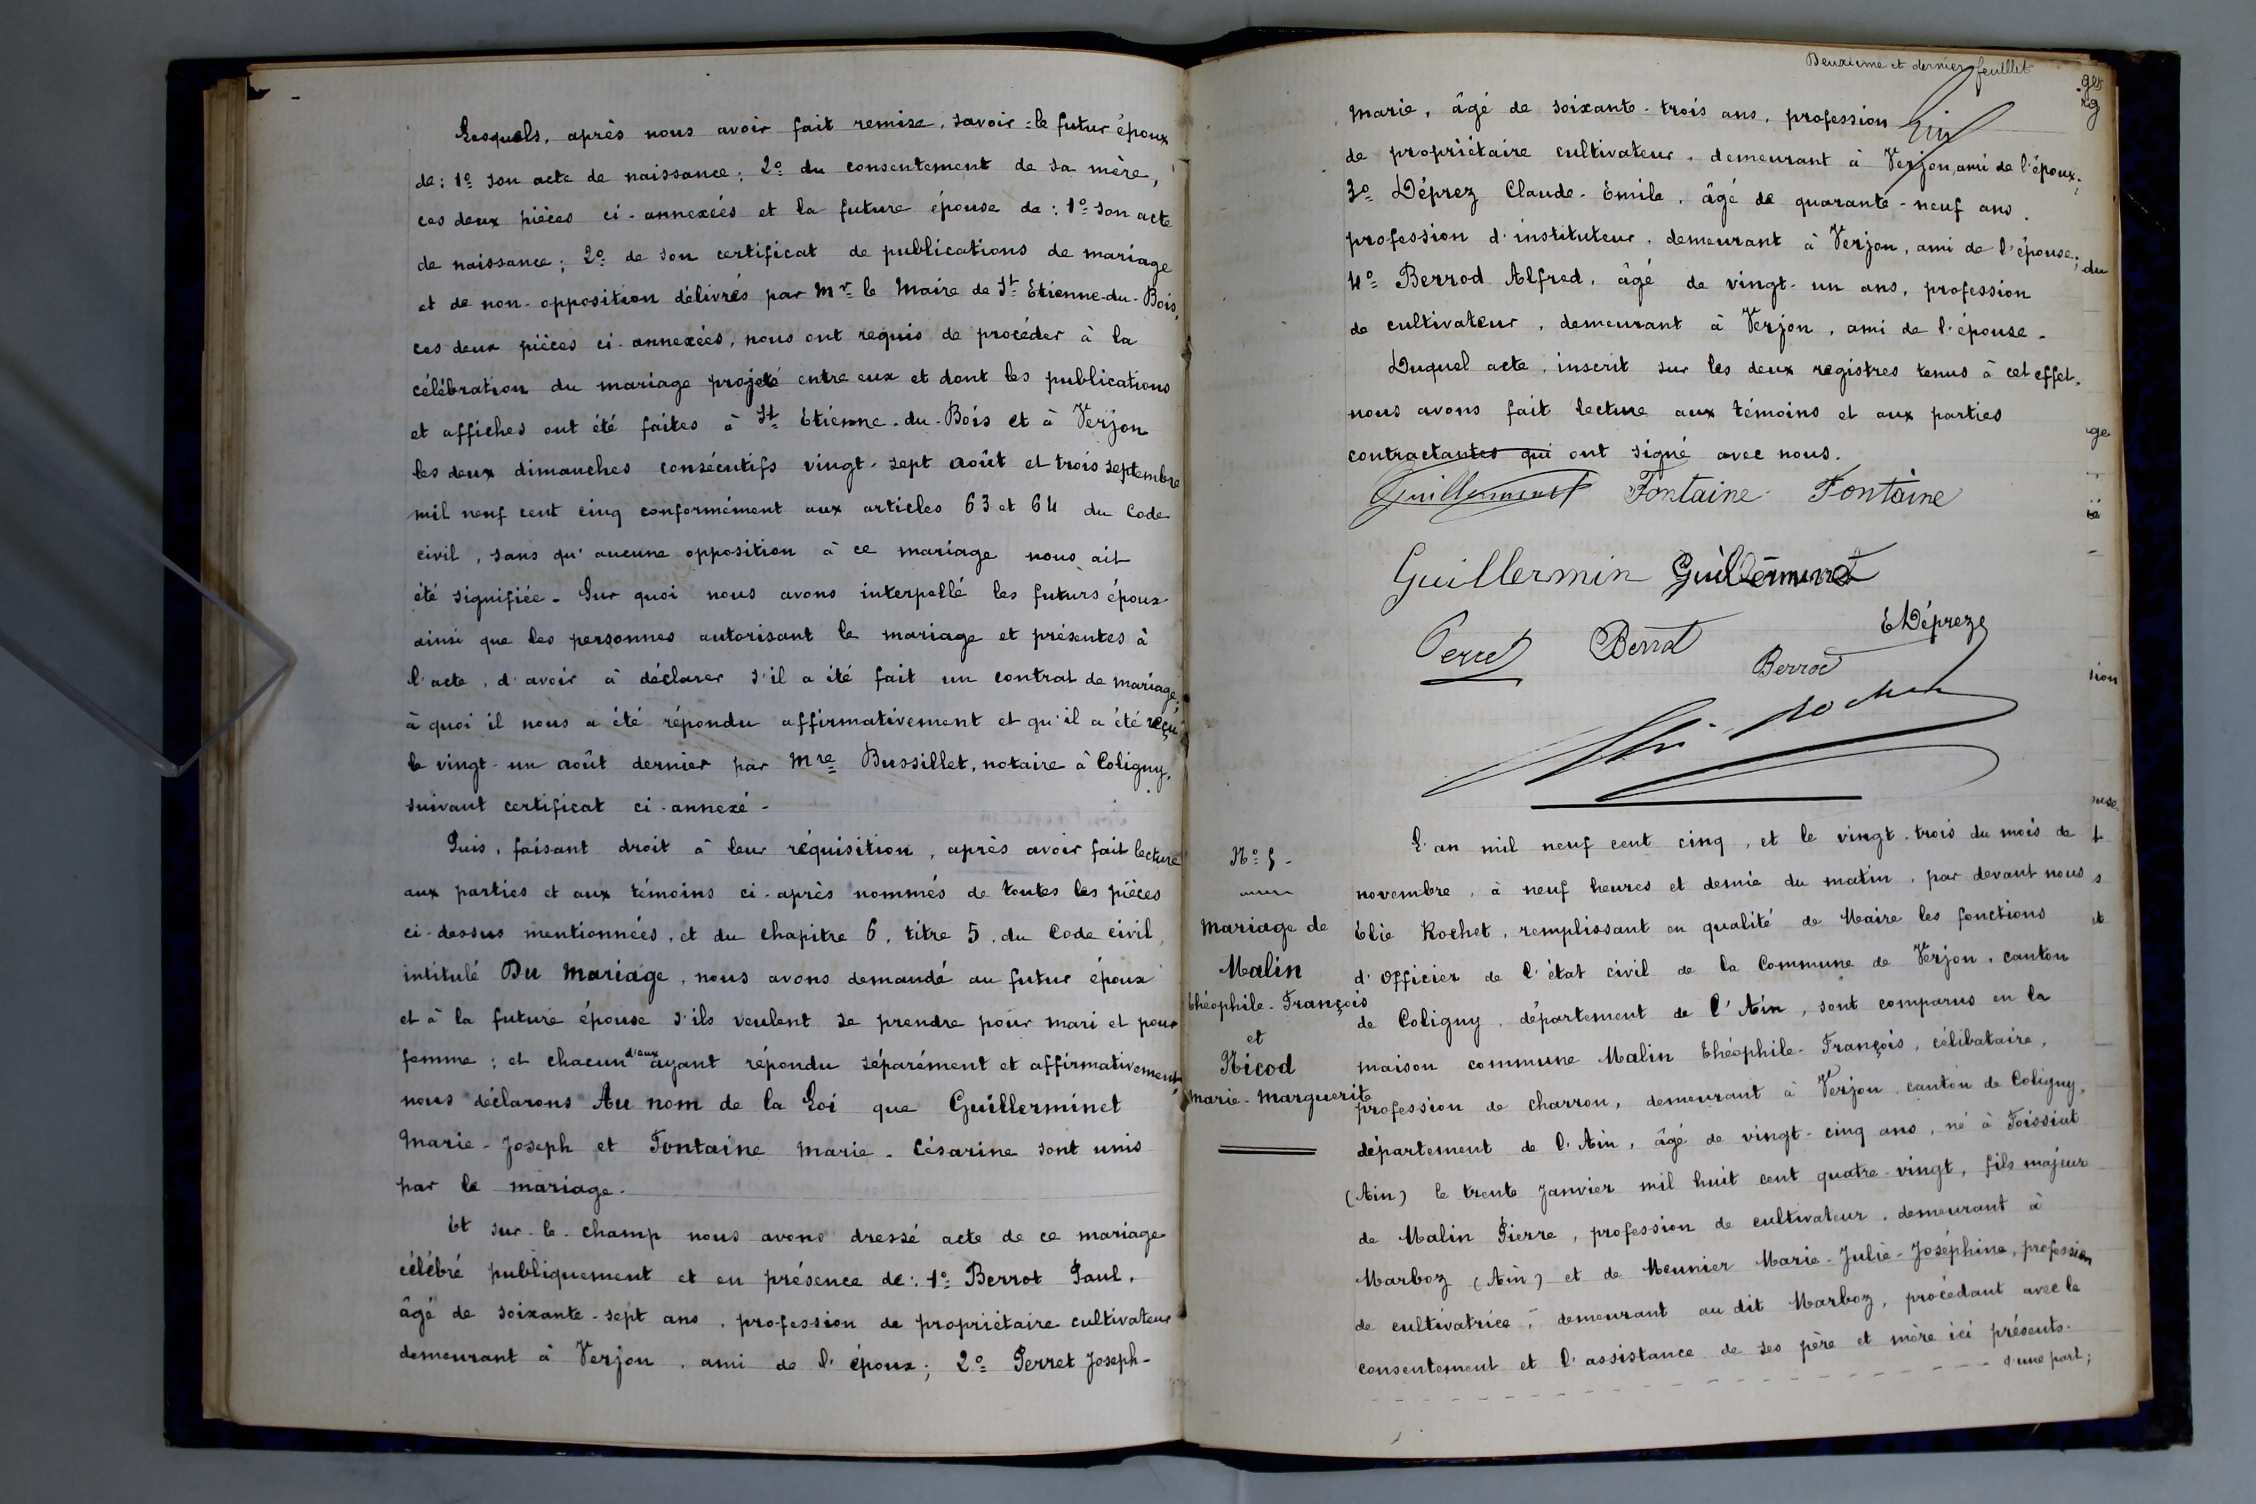 Lesquels, après nous avoir fait remise, savoir : le futur époux
de : 1º son acte de naissance ; 2º du consentement de sa mère,
ces deux pièces ci-annexées et la future épouse de : 1º son acte
de naissance ; 2º de son certificat de publications de mariage
et de non-opposition délivrés par Mr le Maire de St Etienne-du-Bois,
ces deux pièces ci-annexées, nous ont requis de procéder à la
célébration du mariage projeté entre eux et dont les publications
et affiches ont été faites à St Etienne-du-Bois et à Verjon
les deux dimanches consécutifs vingt-sept août et trois septembre
mil neuf cent cinq conformément aux articles 63 et 64 du Code
civil, sans qu'aucune opposition à ce mariage nous ait
été signifiée. Sur quoi nous avons interpellé les futurs époux
ainsi que les personnes autorisant le mariage et présentes à
l'acte, d'avoir à déclarer s'il a été fait un contrat de mariage ;
à quoi il nous a été répondu affirmativement et qu'il a été reçu
le vingt-un août dernier par Mre Bussillet, notaire à Coligny,
suivant certificat ci-annexé.
Puis, faisant droit à leur réquisition, après avoir fait lecture
aux parties et aux témoins ci-après nommés de toutes les pièces
ci-dessus mentionnées, et du chapitre 6, titre 5, du Code civil,
intitulé Du Mariage, nous avons demandé au futur époux
et à la future épouse s'ils veulent se prendre pour mari et pour
femme ; et chacun d'eux ayant répondu séparément et affirmativement
nous déclarons Au nom de la Loi que Guillerminet
Marie-Joseph et Fontaine Marie-Césarine sont unis
par le mariage.
Et sur-le-champ nous avons dressé acte de ce mariage
célébré publiquement et en présence de : 1º Berrot Paul,
âgé de soixante-sept ans, profession de propriétaire cultivateur
demeurant à Verjon, ami de l'époux ; 2º Perret Joseph-
Deuxième et dernier feuillet
Marie, âgé de soixante-trois ans, profession
de propriétaire cultivateur, demeurant à Verjon, ami de l'époux ;
3º Déprez Claude-Emile, âgé de quarante-neuf ans,
profession d'instituteur, demeurant à Verjon, ami de l'épouse ;
4º Berrod Alfred, âgé de vingt-un ans, profession
de cultivateur, demeurant à Verjon, ami de l'épouse.
Duquel acte, inscrit sur les deux registres tenus à cet effet,
nous avons fait lecture aux témoins et aux parties
contractantes qui ont signé avec nous.
Guillerminet Fontaine Fontaine
Guillermin Guillerminet
Perret Berrot EDéprez
Berrod
Elie Rochet
Nº 5
Mariage de
Malin
Théophile-François
et
Nicod
Marie-Marguerite
L'an mil neuf cent cinq, et le vingt-trois du mois de
novembre, à neuf heures et demie du matin, par devant nous
Elie Rochet, remplissant en qualité de Maire les fonctions
d'Officier de l'état civil de la Commune de Verjon, canton
de Coligny, département de l'Ain, sont comparus en la
maison commune Malin Théophile-François, célibataire,
profession de charron, demeurant à Verjon canton de Coligny,
département de l'Ain, âgé de vingt-cinq ans, né à Foissiat
(Ain) le trente Janvier mil huit cent quatre-vingt, fils majeur
de Malin Pierre, profession de cultivateur, demeurant à
Marboz (Ain) et de Meunier Marie-Julie-Joséphine, profession
de cultivatrice, demeurant au dit Marboz, procédant avec le
consentement et l'assistance de ses père et mère ici présents.
d'une part ;